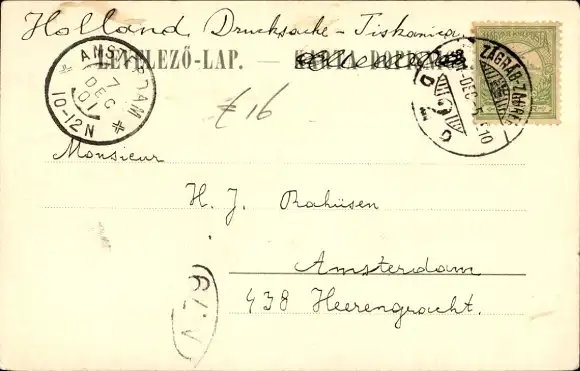 Holland, Drucksache - Tiskanica.
LEVELEZŐ-LAP. —
AMSTERDAM
7
DEC
01
10-12N
ZÁGRÁB-ZAGREB
€ 16
Monsieur
H. J. Rahüsen
Amsterdam
438 Heerengracht.